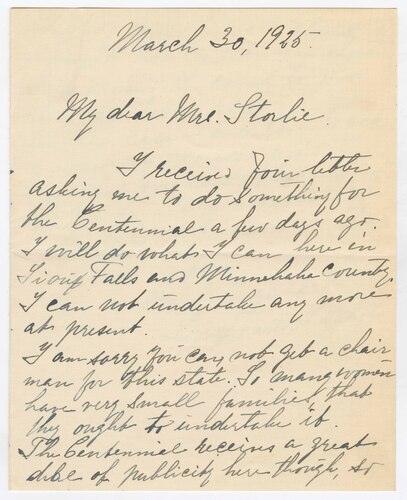 March 30, 1925.
My dear Mrs. Storlie.
I received your letter
asking me to do something for
the Centennial a few days ago.
I will do what I can here in
Sioux Falls and Minnehaha County.
I can not undertake any more
at present.
I am sorry you can not get a chair
man for this state. So many women
have very small families that
they ought to undertake it.
The Centennial receives a great
deal of publicity here though, so